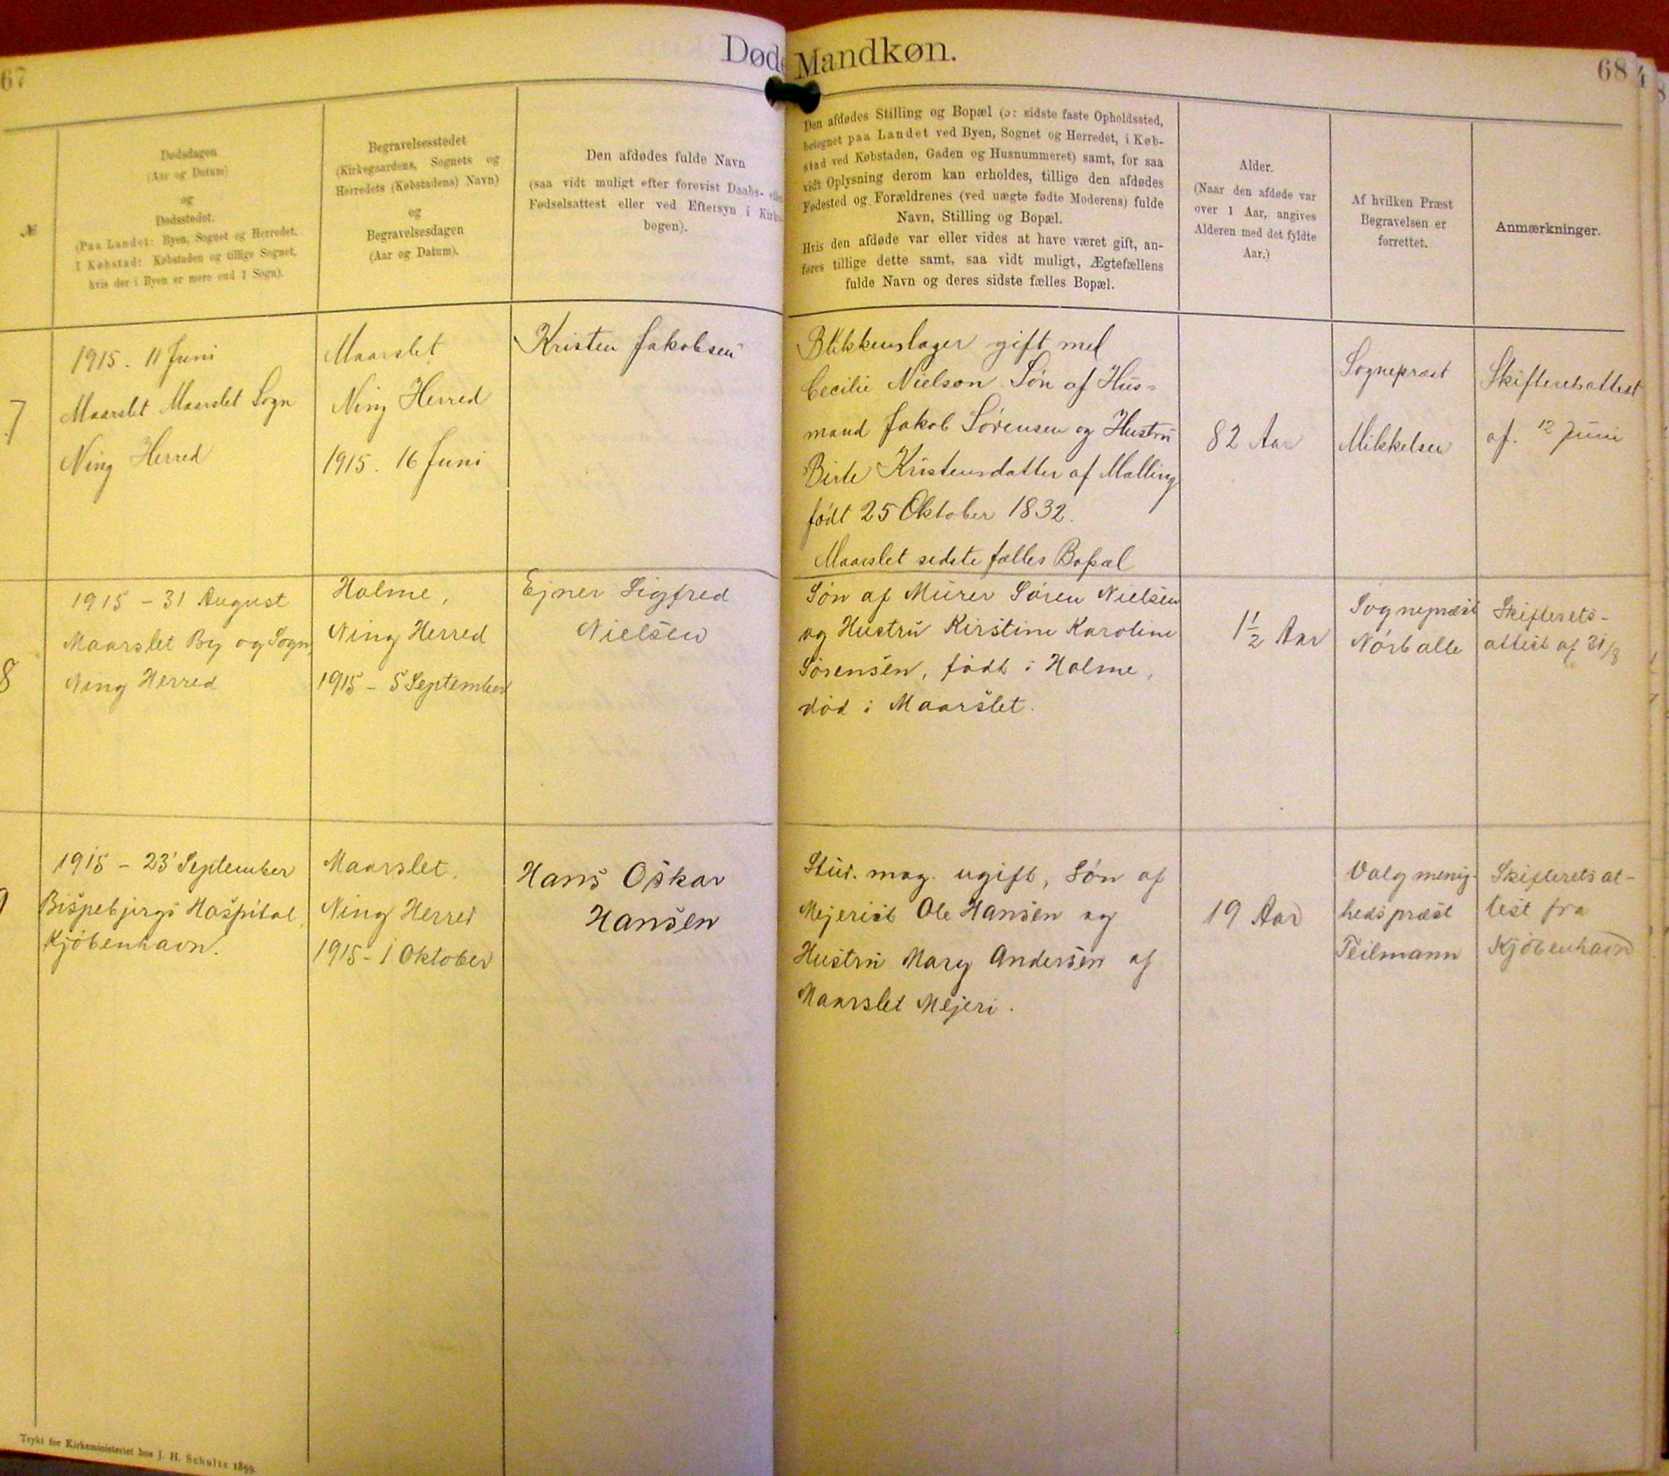 67
Døde
Mandkøn.
68
4
№
Dødsdagen
(Aar og Datum)
og
Dødsstedet.
(Paa Landet: Byen, Sognet og Herredet.
I Købstad: Købstaden og tillige Sognet,
hvis der i Byen er mere end 1 Sogn).
Begravelsesstedet
(Kirkegaardens, Sognets og
Herredets (Købstadens) Navn)
og
Begravelsesdagen
(Aar og Datum).
Den afdødes fulde Navn
(saa vidt muligt efter forevist Daabs- eller
Fødselsattest eller ved Eftersyn i Kirke-
bogen).
Den afdødes Stilling og Bopæl (ɔ: sidste faste Opholdssted,
betegnet paa Landet ved Byen, Sognet og Herredet, i Køb-
stad ved Købstaden, Gaden og Husnummeret) samt, for saa
vidt Oplysning derom kan erholdes, tillige den afdødes
Fødested og Forældrenes (ved uægte fødte Moderens) fulde
Navn, Stilling og Bopæl.
Hvis den afdøde var eller vides at have været gift, an-
føres tillige dette samt, saa vidt muligt, Ægtefællens
fulde Navn og deres sidste fælles Bopæl.
Alder.
(Naar den afdøde var
over 1 Aar, angives
Alderen med det fyldte
Aar.)
Af hvilken Præst
Begravelsen er
forrettet.
Anmærkninger.
7
1915. 11 Juni
Maarslet Maarslet Sogn
Ning Herred
Maarslet
Ning Herred
1915. 16 Juni
Kristen Jakobsen
Blikkenslager gift med
Cecilie Nielson Søn af Hus=
mand Jakob Sørensen og Hustru
Birte Kristensdatter af Malling
født 25 Oktober 1832.
Maarslet sidste fælles Bopæl
82 Aar
Sognepræst
Mikkelsen
Skifteretsattest
af. 12 Juni
8
1915 - 31 August
Maarslet By og Sogn,
Ning Herred
Holme,
Ning Herred
1915 - 5 September
Ejner Sigfred
Nielsen
Søn af Murer Søren Nielsen
og Hustru Kirstine Karoline
Sørensen, født i Holme,
død i Maarslet.
1 1/2 Aar
Sognepræst
Nørballe
Skifterets-
attest af 31/8
9
1915 - 23 September
Bispebjergs Hospital,
Kjøbenhavn.
Maarslet.
Ning Herred
1915 - 1 Oktober
Hans Oskar
Hansen
Stud. mag. ugift, Søn af
Mejerist Ole Hansen og
Hustru Mary Andersen af
Maarslet Mejeri.
19 Aar
Valgmenig-
hedspræst
Teilmann
Skifteretsat-
test fra
Kjøbenhavn
Trykt for Kirkeministeriet hos J. H. Schultz 1899.